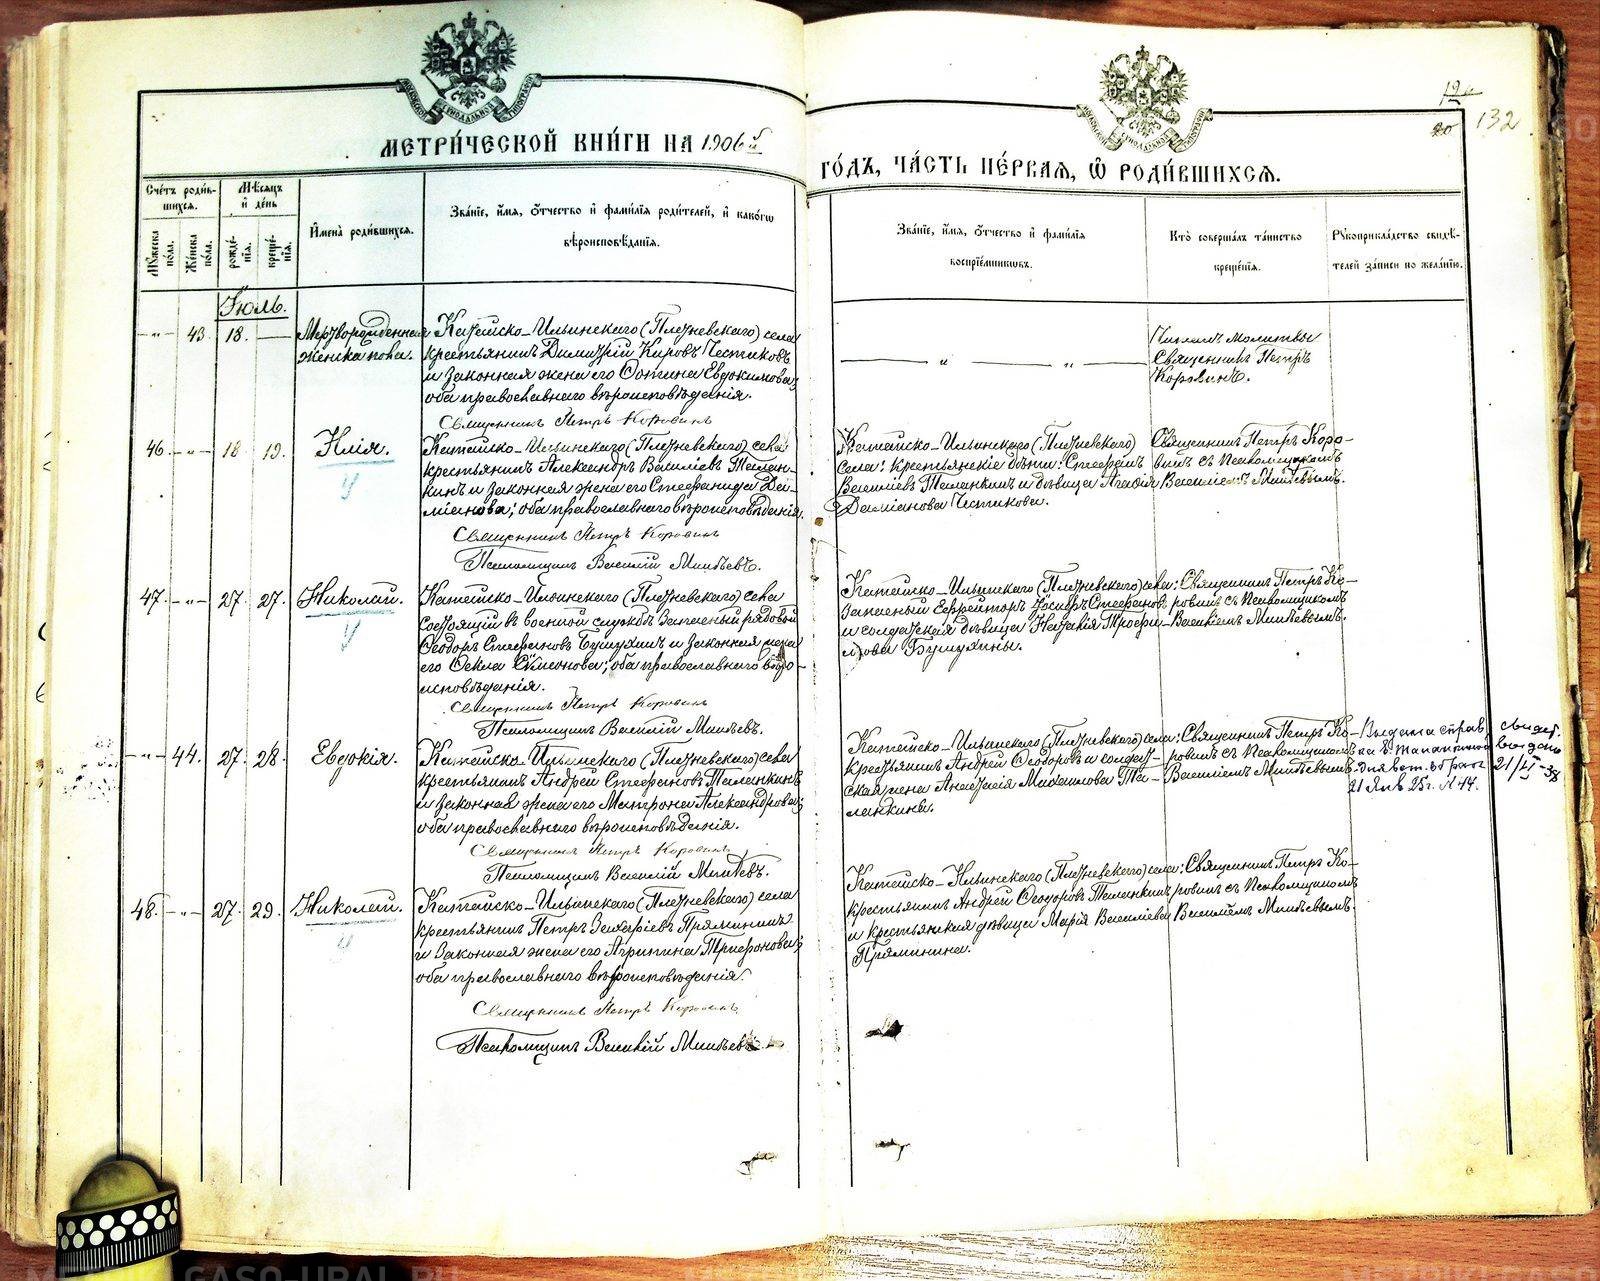 МОСКОВСКОЙ СѴНОДАЛЬНОЙ ТИПОГРАФІИ
МОСКОВСКОЙ СѴНОДАЛЬНОЙ ТИПОГРАФІИ
132
20
МЕТРИ́ЧЕСКОЙ КНИ́ГИ НА 1906 й
ГО́ДЪ, ЧА́СТЬ ПЕ́РВАЯ, Ѡ҆ РОДИ́ВШИХСЯ.
Сче́тъ роди́в-
шихся.
Мꙋжеска по́ла.
Же́нска по́ла.
Мѣ́сяцъ
и҆ де́нь
рожде́-
нїя.
креще́-
нїя.
И҆мена̀ роди́вшихся.
Зва́нїе, и҆́мя, ѻ҆́тчество и҆ фами́лїя роди́телей, и҆ како́гѡ
вѣроисповѣ́данїя.
Зва́нїе, и҆́мя, ѻ҆́тчество и҆ фами́лїя
воспрїе́мникѡвъ.
Кто̀ соверша́лъ та́инство
креще́нїя.
Рꙋкоприкла́дство свидѣ́-
телей за́писи по жела́нїю.
Іюль.
-"- 43. 18. —
Мертворожденная
женска пола.
Катайско-Ильинскаго (Плотневскаго) села
крестьянинъ Димитрій Кировъ Честиковъ
и законная жена его Фотина Евдокимова;
оба православнаго вѣроисповѣданія.
Священникъ Петръ Коровинъ
— " — " —
Читалъ молитвы
Священникъ Петръ
Коровинъ.
46. -"- 18. 19.
Илія.
Катайско-Ильинскаго (Плотневскаго) села
крестьянинъ Александръ Василіевъ Талан-
кинъ и законная жена его Стефанида Да-
міанова; оба православнаго вѣроисповѣданія.
Священникъ Петръ Коровинъ
Псаломщикъ Василій Минѣевъ.
Катайско-Ильинскаго (Плотневскаго)
села: крестьянскіе дѣти: Стефанъ
Василіевъ Таланкинъ и дѣвица Агафія
Даміанова Честикова.
Священникъ Петръ Коро-
винъ съ Псаломщикомъ
Василіемъ Минѣевымъ.
47. -"- 27. 27.
Николай.
Катайско-Ильинскаго (Плотневскаго) села
состоящій въ военной службѣ запасный рядовой
Ѳеодоръ Стефановъ и законная жена
его Ѳекла Сѵмеонова; оба православнаго вѣро-
исповѣданія.
Священникъ Петръ Коровинъ
Псаломщикъ Василій Минѣевъ.
Катайско-Ильинскаго (Плотневскаго) села:
запасный ефрейторъ Іосифъ Стефановъ
и солдатская дѣвица Наталія Трофи-
мова
Священникъ Петръ Ко-
ровинъ съ Псаломщикомъ
Василіемъ Минѣевымъ.
-"- 44. 27. 28.
Евдокія.
Катайско-Ильинскаго (Плотневскаго) села
крестьянинъ Андрей Стефановъ Таланкинъ
и законная жена его Матрона Александрова;
оба православнаго вѣроисповѣданія.
Священникъ Петръ Коровинъ
Псаломщикъ Василій Минѣевъ.
Катайско-Ильинскаго (Плотневскаго) села:
Крестьянинъ Андрей Ѳеодоровъ и солдат-
ская жена Анастасія Михаилова Та-
ланкины.
Священникъ Петръ Ко-
ровинъ съ Псаломщикомъ
Василіемъ Минѣевымъ.
Выдана справ
для вст. в брак
21 Янв 25г. № 44.
свидет.
выдано
21/VI-38
48. -"- 27. 29.
Николай.
Катайско-Ильинскаго (Плотневскаго) села
крестьянинъ Петръ Захаріевъ Прямининъ
и законная жена его Агрипина Трифонова;
оба православнаго вѣроисповѣданія.
Священникъ Петръ Коровинъ
Псаломщикъ Василій Минѣевъ
Катайско-Ильинскаго (Плотневскаго) села:
крестьянинъ Андрей Ѳеодоровъ Таланкинъ
и крестьянская дѣвица Марія Василіева
Пряминина.
Священникъ Петръ Ко-
ровинъ съ Псаломщикомъ
Василіемъ Минѣевымъ.